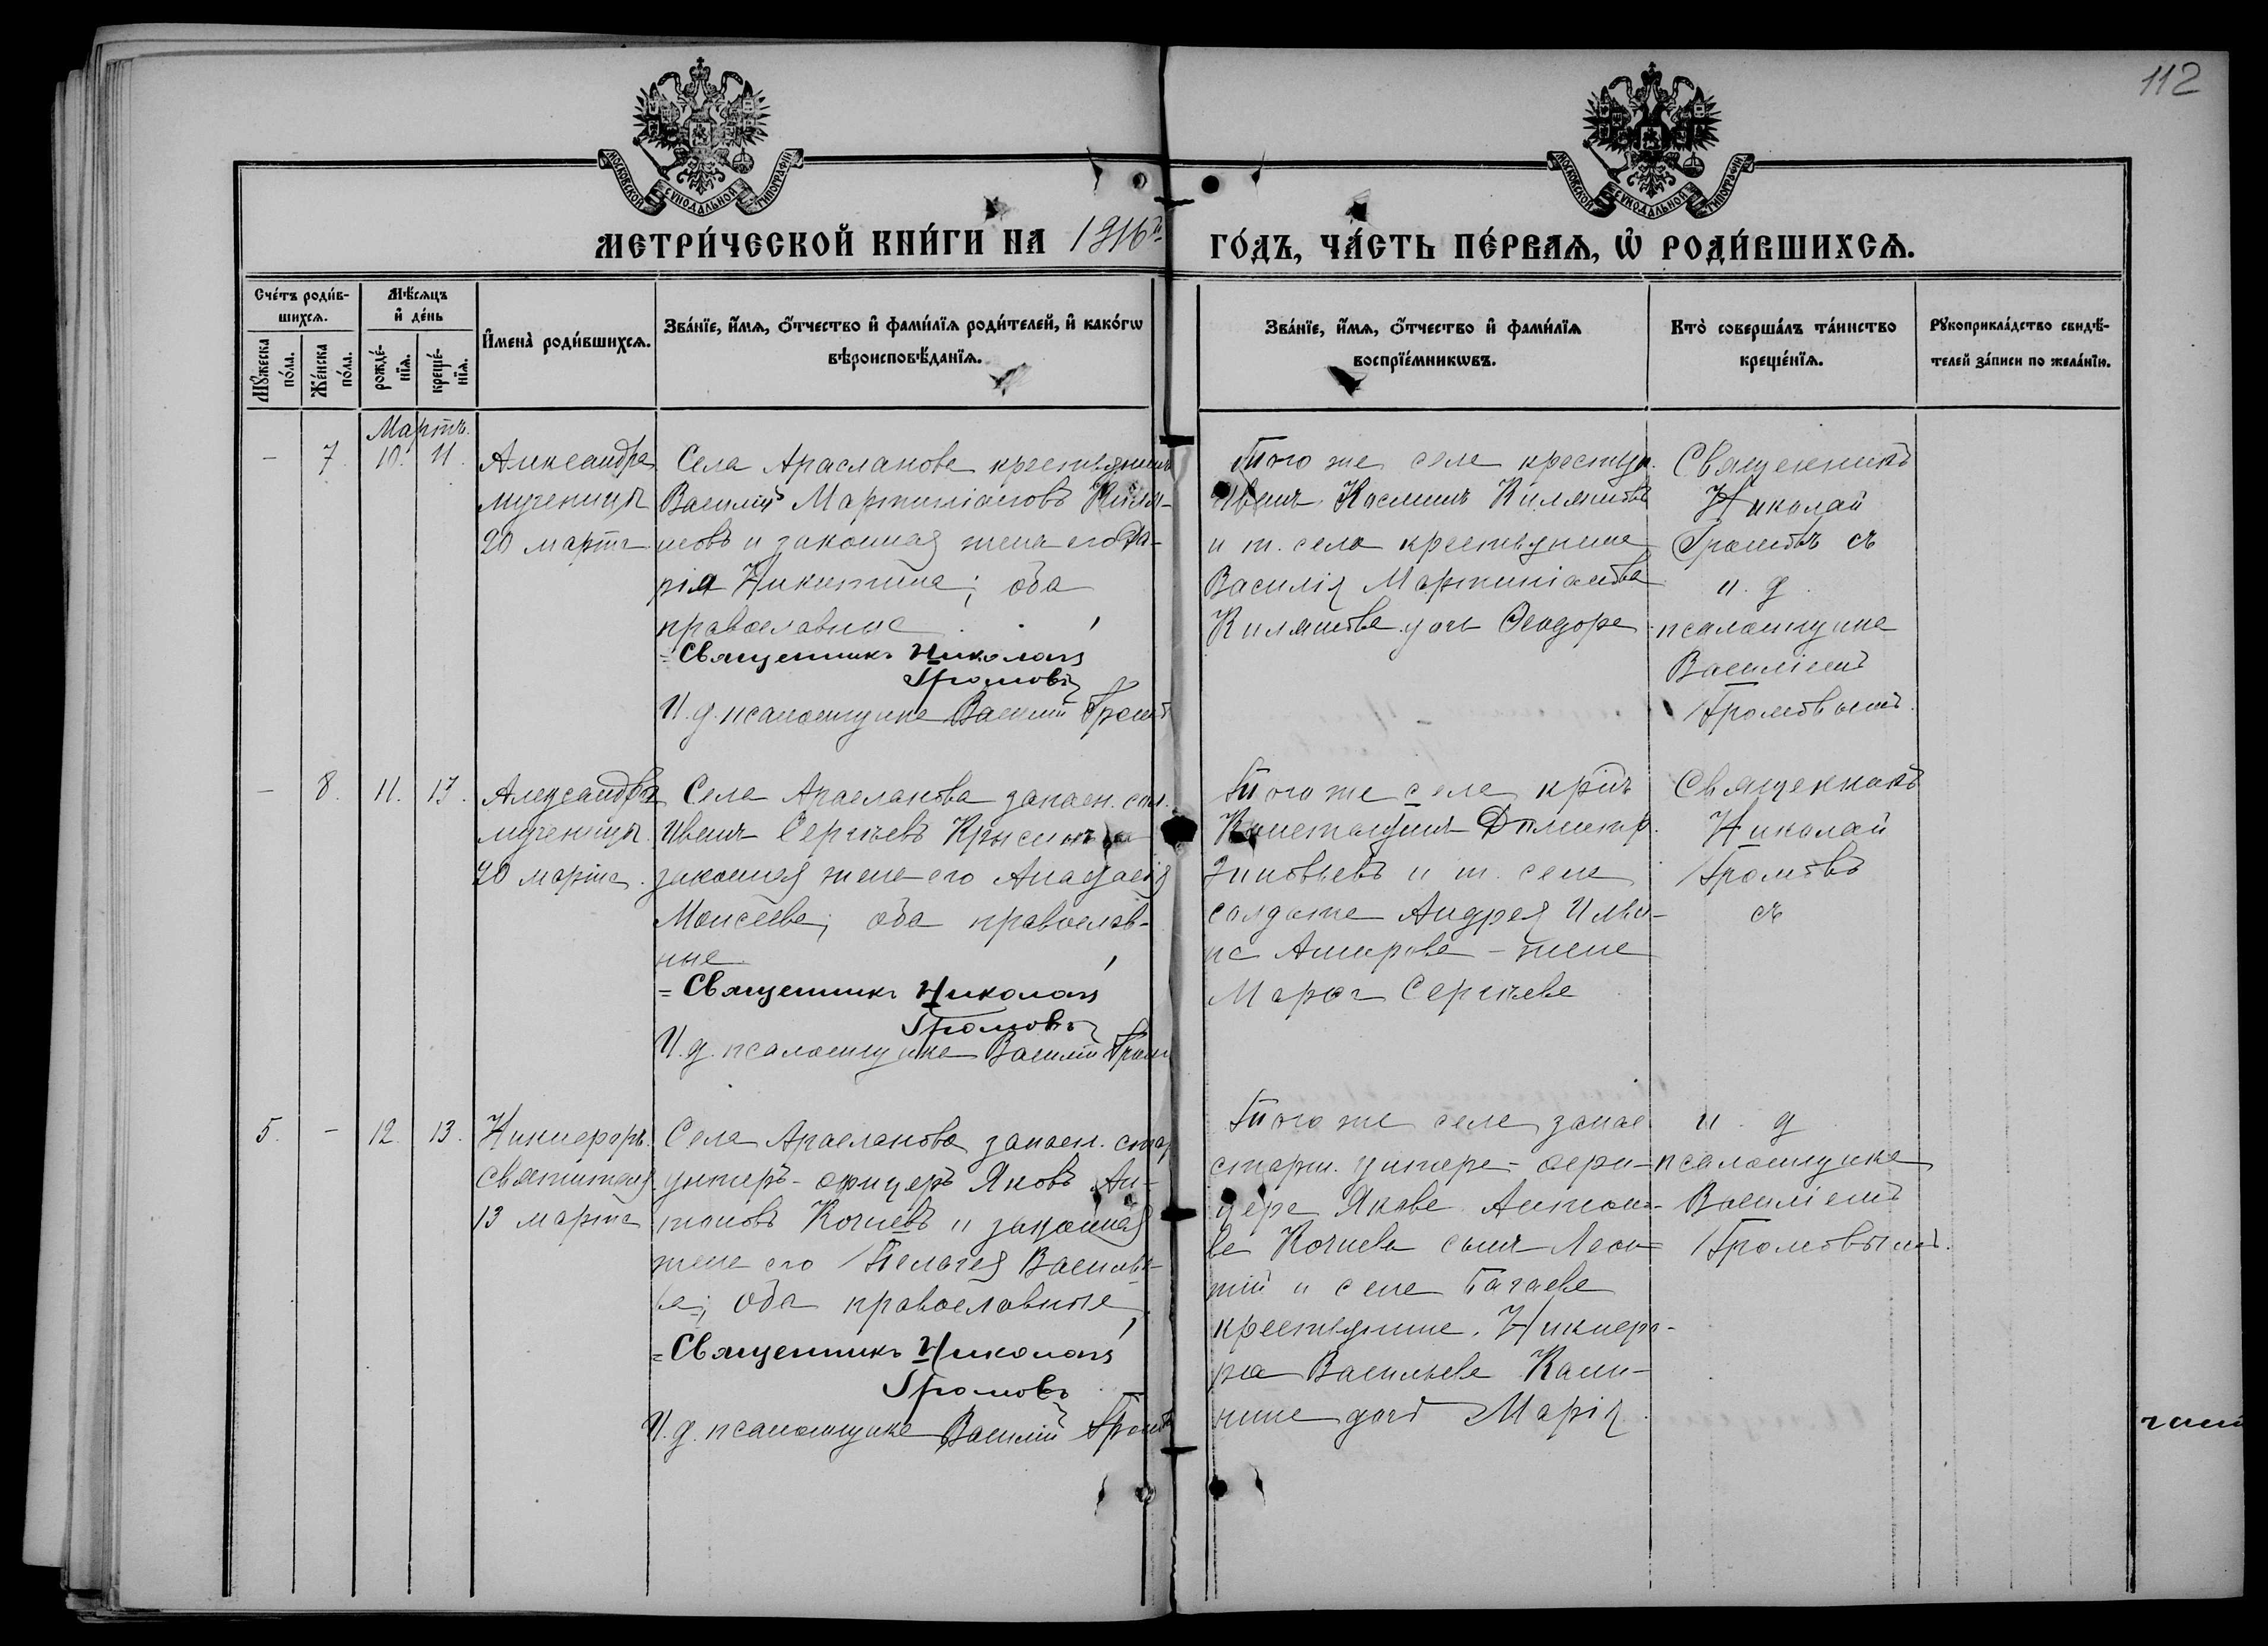 112
МОСКОВСКОЙ СѴНОДАЛЬНОЙ ТИПОГРАФІИ
МОСКОВСКОЙ СѴНОДАЛЬНОЙ ТИПОГРАФІИ
МЕТРИ́ЧЕСКОЙ КНИ́ГИ НА 1916й ГО́ДЪ, ЧА́СТЬ ПЕ́РВАЯ, Ѡ҆ РОДИ́ВШИХСЯ.
Сче́тъ роди́в-
шихся.
Мꙋ́жеска
по́ла.
Же́нска
по́ла.
Мѣ́сяцъ
и҆ де́нь
рожде́-
нїя.
креще́-
нїя.
И҆мена̀ роди́вшихся.
Зва́нїе, и҆́мя, ѻ҆́тчество и҆ фами́лїя роди́телей, и҆ како́гѡ
вѣроисповѣ́данїя.
Зва́нїе, и҆́мя, ѻ҆́тчество и҆ фами́лїя
воспрїе́мникѡвъ.
Кто̀ соверша́лъ та́инство
креще́нїя.
Рꙋкоприкла́дство свидѣ́-
телей за́писи по жела́нїю.
Мартъ.
- 7. 10. 11.
Александра
мученица
20 марта
Села Арасланова крестьянинъ
Василій Мартиніановъ Киля-
новъ и законная жена его Да-
рія Никитина; оба
православные
= Священникъ Николай
Громовъ
И. д. псаломщика Василій Громовъ
Того же села крестьян.
Иванъ Косминъ Килянов
и т. села крестьянина
Василія Мартиніанова
Килянова дочь Ѳеодора
Священникъ
Николай
Громовъ съ
и. д.
псаломщика
Василіемъ
Громовымъ.
- 8. 11. 13.
Александра
мученица
20 марта.
Села Арасланова запасн. сол.
Иванъ Сергѣевъ Крысинъ и
законная жена его Анастасія
Моисеева; оба православ-
ные
= Священникъ Николай
Громовъ
И. д. псаломщика Василій Громовъ
Того же села кр-нъ
Константинъ Димитр.
Зиновьевъ и т. села
солдата Андрея Ильи-
на Амирова - жена
Марѳа Сергѣева
Священникъ
Николай
Громовъ
съ
5. - 12. 13.
Никифоръ.
святителя
13 марта
Села Арасланова запасн. стар
унтеръ-офицеръ Яковъ Ан-
тоновъ Кочневъ и законная
жена его Пелагея Василье-
ва; оба православные
= Священникъ Николай
Громовъ
И. д. псаломщика Василій Громовъ
Того же села запас
старш. унтера-офи-
цера Якова Антоно-
ва Кочнева сынъ Леон-
тій и села
крестьянина. Никифо-
ра Васильева
дочь Марія.
и. д.
псаломщика
Василіемъ
Громовымъ.